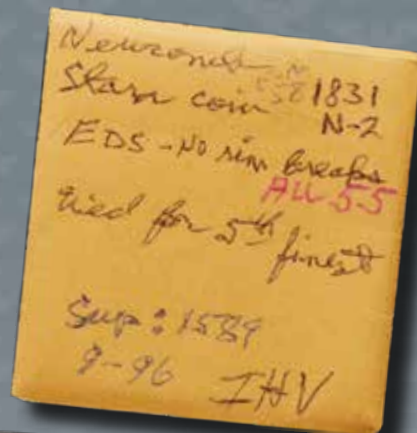 Newcomb 1831
Starr coin N-2
EDS - No rim breaks
AU 55
tied for 5th finest
Sup: 1589
9-96 IHV